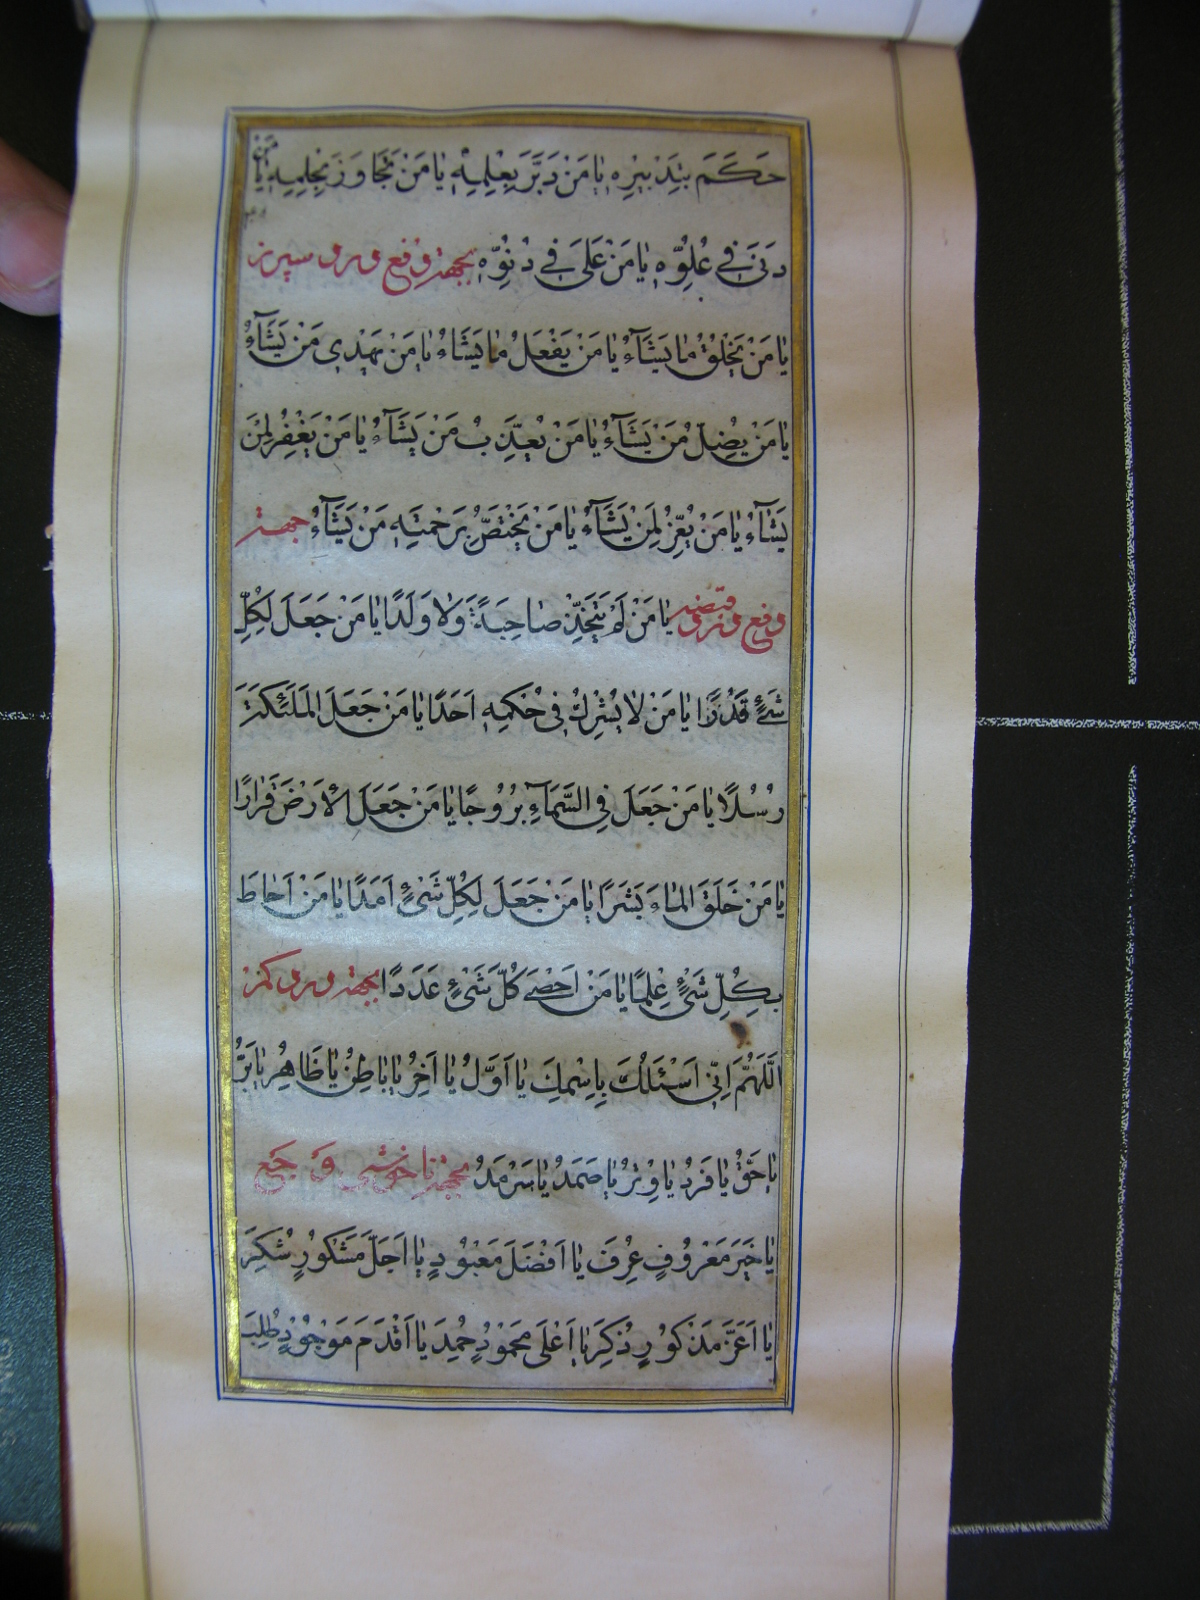 حَكَمَ بِتَدْبِيرِهِ يَا مَنْ دَبَّرَ بِعِلْمِهِ يَا مَنْ تَجَاوَزَ بِحِلْمِهِ يَا مَنْ
دَنَىٰ فِي عُلُوِّهِ يَا مَنْ عَلَىٰ فِي دُنُوِّهِ بجهة دفع درد سپرز
يَا مَنْ يَخْلُقُ مَا يَشَآءُ يَا مَنْ يَفْعَلُ مَا يَشَاءُ يَا مَنْ يَهْدِي مَنْ يَشَآءُ
يَا مَنْ يُضِلُّ مَنْ يَشَآءُ يَا مَنْ يُعَذِّبُ مَنْ يَشَآءُ يَا مَنْ يَغْفِرُ لِمَنْ
يَشَآءُ يَا مَنْ يُعِزُّ لِمَنْ يَشَآءُ يَا مَنْ يَخْتَصُّ بِرَحْمَتِهِ مَنْ يَشَآءُ جهة
دفع درد يَا مَنْ لَمْ يَتَّخِذْ صَاحِبَةً وَلَا وَلَدًا يَا مَنْ جَعَلَ لِكُلِّ
شَيْءٍ قَدْرًا يَا مَنْ لَا يُشْرِكُ فِي حُكْمِهِ اَحَدًا يَا مَنْ جَعَلَ الْمَلَئِكَةَ
رُسُلًا يَا مَنْ جَعَلَ فِي السَّمَآءِ بُرُوجًا يَا مَنْ جَعَلَ الْاَرْضَ قَرَارًا
يَا مَنْ خَلَقَ الْمَاءَ بَشَرًا يَا مَنْ جَعَلَ لِكُلِّ شَيْءٍ اَمَدًا يَا مَنْ اَحَاطَ
بِكُلِّ شَيْءٍ عِلْمًا يَا مَنْ اَحْصَىٰ كُلَّ شَيْءٍ عَدَدًا بجهة درد كمر
اَللّٰهُمَّ اِنِّي اَسْئَلُكَ بِاسْمِكَ يَا اَوَّلُ يَا اٰخِرُ يَا بَاطِنُ يَا ظَاهِرُ يَا بَرُّ
يَا حَقُّ يَا فَرْدُ يَا وِتْرُ يَا صَمَدُ يَا سَرْمَدُ بجهة ناخوشى
يَا خَيْرَ مَعْرُوفٍ عُرِفَ يَا اَفْضَلَ مَعْبُودٍ يَا اَجَلَّ مَشْكُورٍ شُكِرَ
يَا اَعَزَّ مَذْكُورٍ ذُكِرَ يَا اَعْلَىٰ مَحْمُودٍ حُمِدَ يَا اَقْدَمَ مَوْجُودٍ طُلِبَ